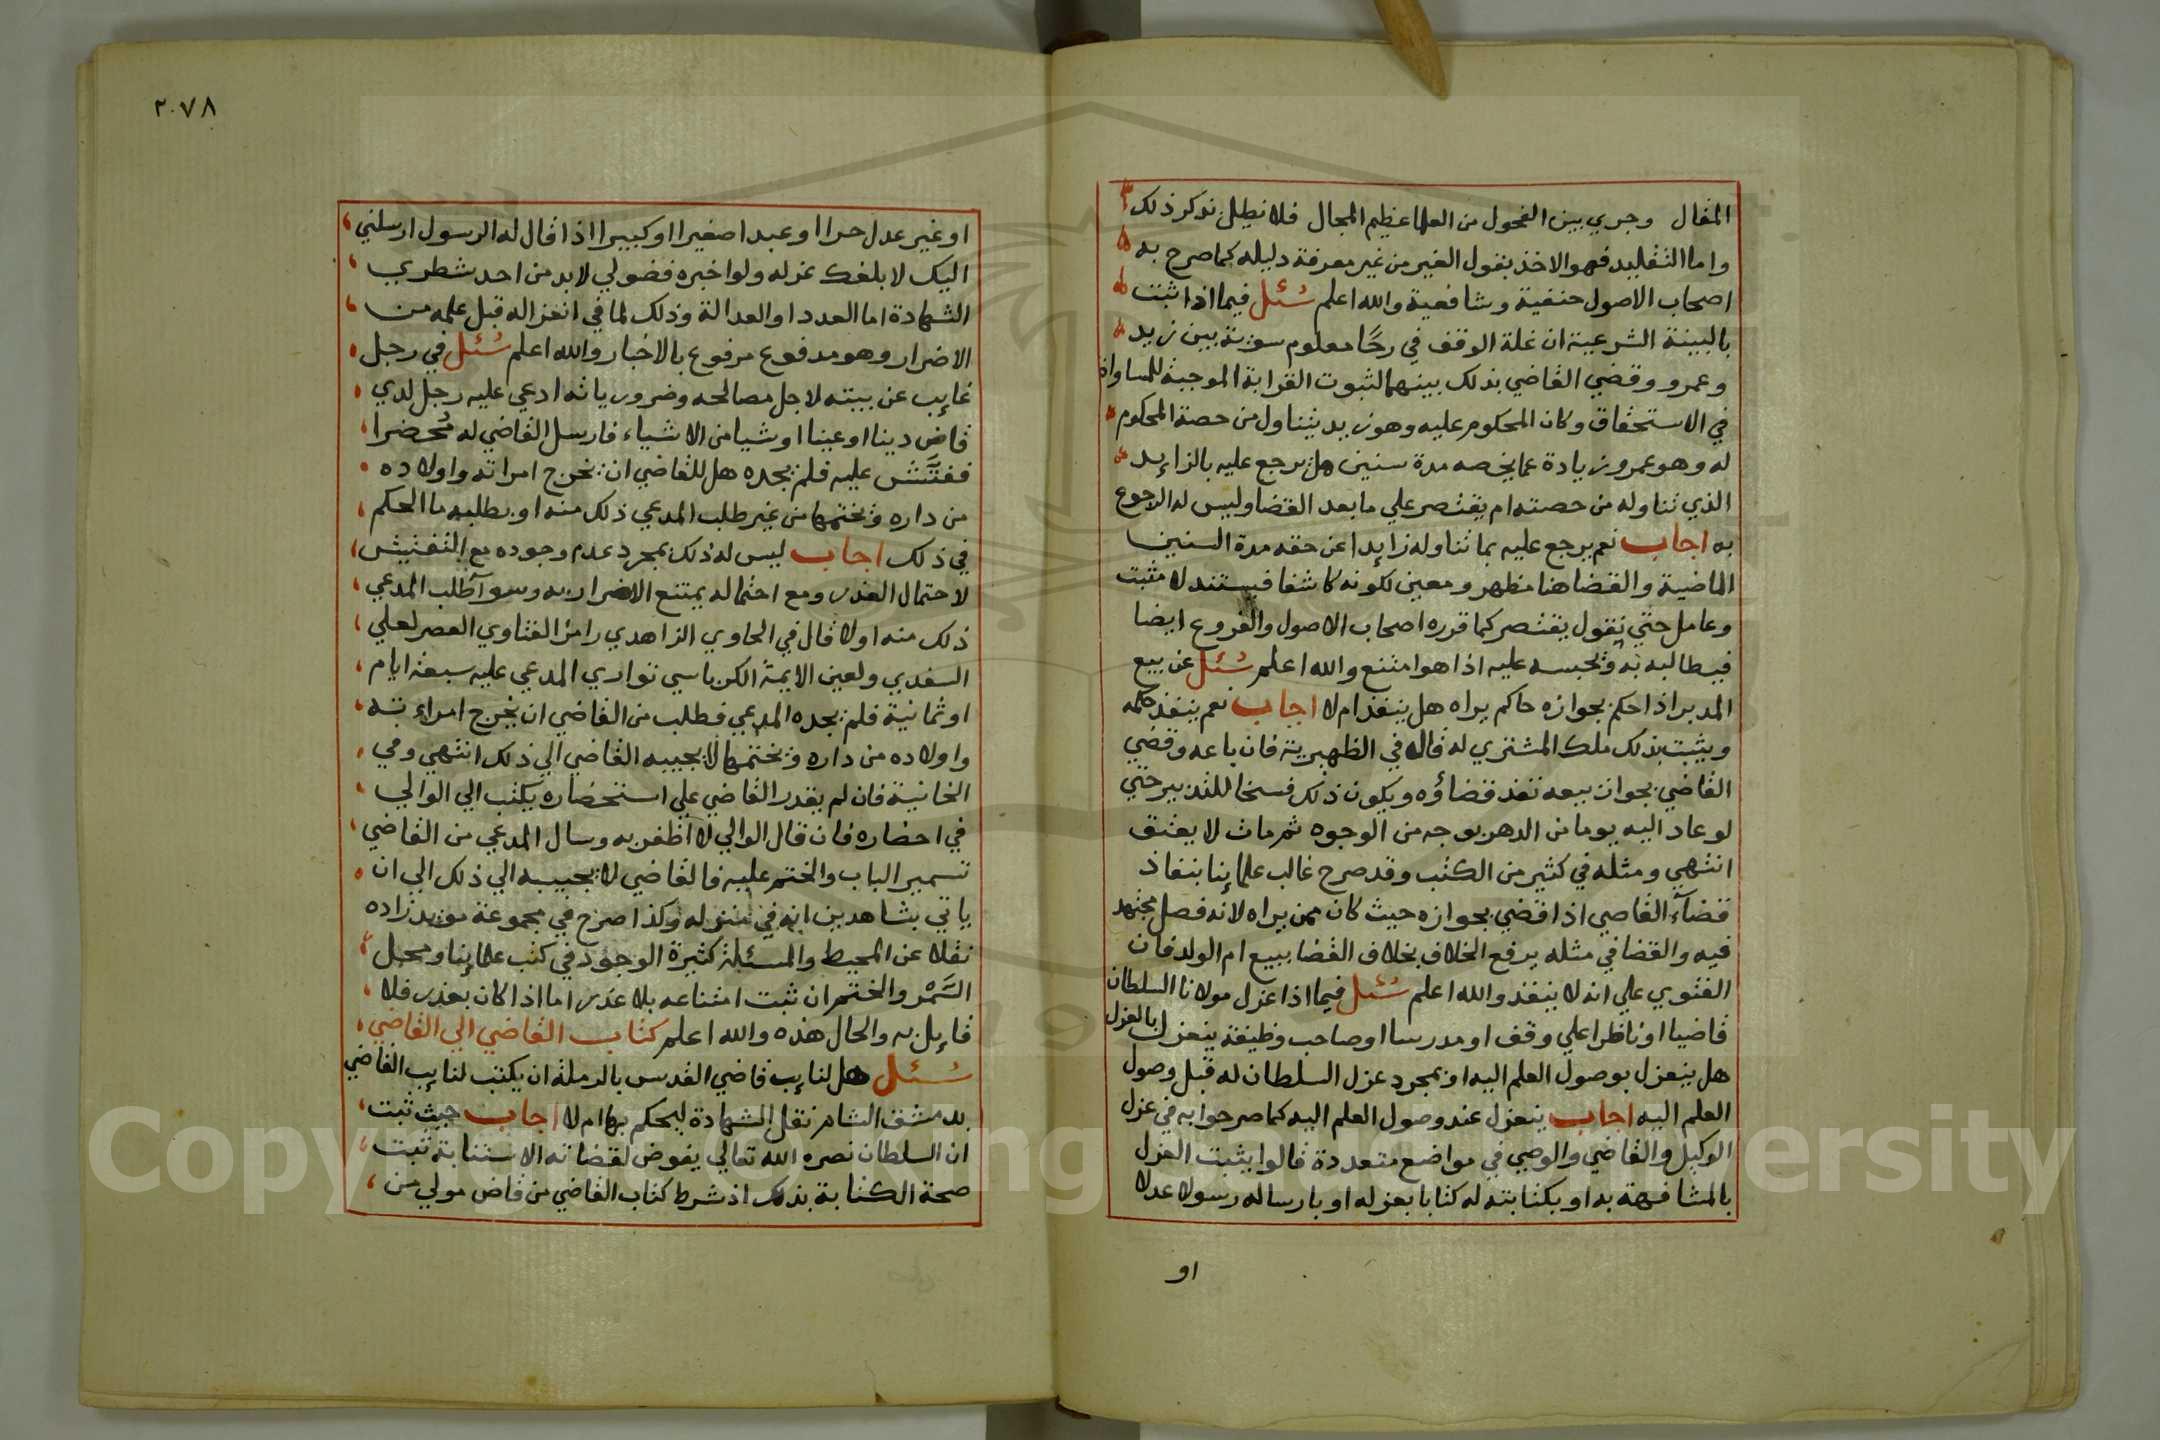 المقال وجري بين الفحول من العلما عظيم المجال فلا نطيل نذكر ذلك
واما التقليد فهو الاخذ بقول الغير من غير معرفة دليله كما صرح به
اصحاب الاصول حنفية وشافعية والله اعلم سُئل فيما اذا ثبت
بالبينة الشرعية ان غلة الوقف في رحًا معلوم سوية بين زيد
وعمرو وقضي القاضي بذلك بينهما لثبوت القرابة الموجبة للمساواة
في الاستحقاق وكان المحكوم عليه وهو زيد يتناول من حصة المحكوم
له وهو عمرو زيادة عما يخصه مدة سنين هل يرجع عليه بالزايد
الذي تناوله من حصته ام يقتصر علي ما بعد القضا وليس له الرجوع
به اجاب نعم يرجع عليه بما تناوله زايدا عن حقه مدة السنين
الماضية والقضا هنا مظهر ومعين لكونه كاشفا فيستند لا مثبت
وعامل حتي نقول يقتصر كما قرره اصحاب الاصول والفروع ايضا
فيطالبه به ويحبسه عليه اذا هو امتنع والله اعلم سُئل عن بيع
المدبر اذا حكم بجوازه حاكم يراه هل ينفذ ام لا اجاب نعم ينفذ حكمه
ويثبت بذلك ملك المشتري له قال في الظهيرية فان باعه وقضي
القاضي بجواز بيعه نفذ قضاؤه ويكون ذلك فسخا للتدبير حتي
لو عاد اليه يوما من الدهر بوجه من الوجوه ثم مات لا يعتق
انتهي ومثله في كثير من الكتب وقد صرح غالب علماينا بنفاذ
قضآء القاضي اذا قضي بجوازه حيث كان ممن يراه لانه فصل مجتهد
فيه والقضا في مثله يرفع الخلاف بخلاف القضا ببيع ام الولد فان
الفتوي علي انه لا ينفذ والله اعلم سُئل فيما اذا عزل مولانا السلطان
قاضيا او ناظرا علي وقف او مدرسا او صاحب وظيفة ينعزل بالعزل
هل ينعزل بوصول العلم اليه او بمجرد عزل السلطان له قبل وصول
العلم اليه اجاب ينعزل عند وصول العلم اليه كما صرحوا به في عزل
الوكيل والقاضي والوصي في مواضع متعددة قالوا يثبت العزل
بالمشافهة به او بكتابته له كتابا بعزله او بارساله رسولا عدلا
او
٢٠٧٨
او غير عدل حرا او عبدا صغيرا او كبيرا اذا قال له الرسول ارسلني
اليك لابلغك عزله ولو اخبره فضولي لا بد من احد شطري
الشهادة اما العدد او العدالة وذلك لما في انعزاله قبل علمه من
الاضرار وهو مدفوع مرفوع بالاخبار والله اعلم سُئل في رجل
غايب عن بيته لاجل مصالحه وضرورياته ادعي عليه رجل لدي
قاض دينا او عينا او شيا من الاشياء فارسل القاضي له مُحضرا
ففتَّش عليه فلم يجده هل للقاضي ان يخرج امراته واولاده
من داره ويختمها من غير طلب المدعي ذلك منه او بطلبه ما الحكم
في ذلك اجاب ليس له ذلك بمجرد عدم وجوده مع التفتيش
لاحتمال العذر ومع احتماله يمتنع الاضرار به وسوآ طلب المدعي
ذلك منه اولا قال في الحاوي الزاهدي رامز الفتاوي العصر لعلي
السغدي ولعين الايمة الكرباسي تواري المدعي عليه سبعة ايام
او ثمانية فلم يجده المدعي فطلب من القاضي ان يخرج امراءته
واولاده من داره ويختمها لا يجيبه القاضي الي ذلك انتهي وفي
الخانية فان لم يقدر القاضي علي استحضاره يكتب الي الوالي
في احضاره فان قال الوالي لا اظفر به وسال المدعي من القاضي
تسمير الباب والختم عليه فالقاضي لا يجيبه الي ذلك الي ان
ياتي بشاهدين انه في منزله وكذا صرح في مجموعة مويد زاده
نقلا عن المحيط والمسئلة كثيرة الوجود في كتب علماينا ومحل
السَّمْر والختم ان ثبت امتناعه بلا عذر اما اذا كان بعذر فلا
قايل به والحال هذه والله اعلم كتاب القاضي الي القاضي
سُئل هل لنايب قاضي القدس بالرملة ان يكتب لنايب القاضي
بدمشق الشام نقل الشهادة ليحكم بها ام لا اجاب حيث ثبت
ان السلطان نصره الله تعالي يفوض لقضاته الاستنابة ثبت
صحة الكتابة بذلك اذ شرط كتاب القاضي من قاض مولي من